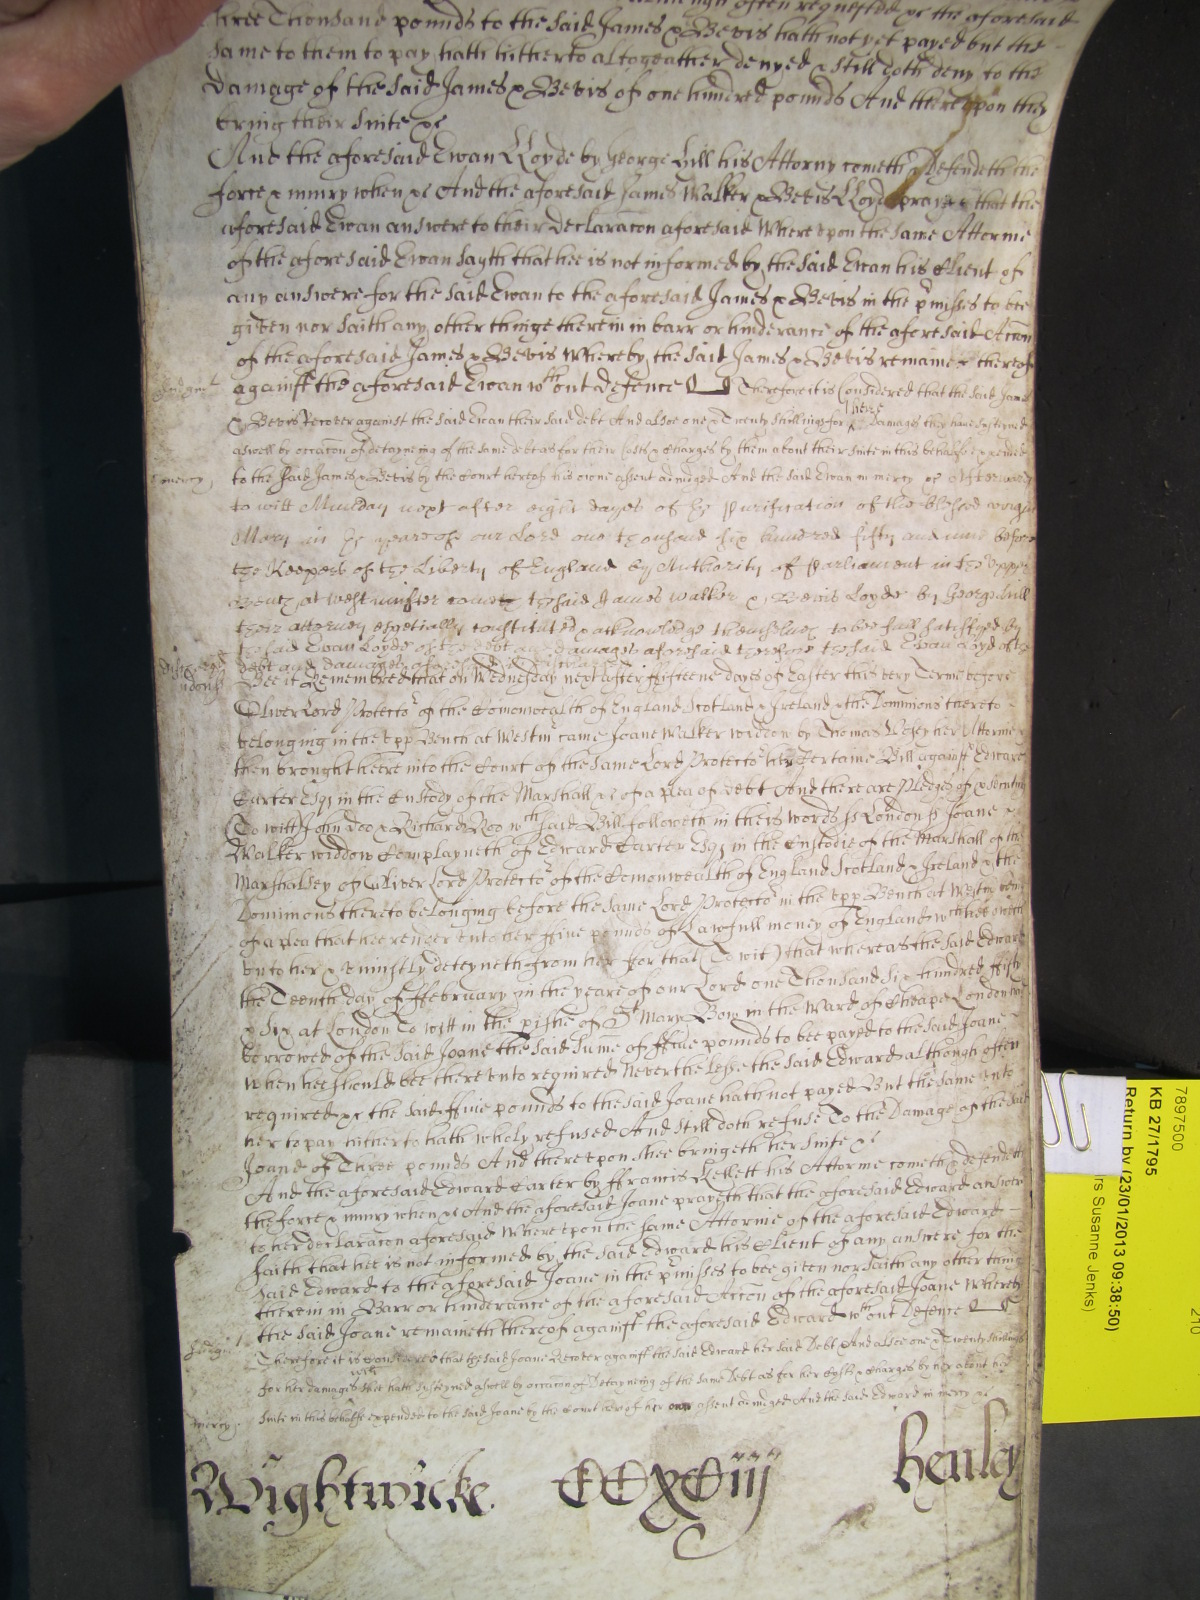 often requested &c the aforesaid
three Thousand pounds to the said James & Bevis hath not yet payed but the
same to them to pay hath hitherto altogeather denyed & still doth deny to the
damage of the said James & Bevis of one hundred pounds And thereupon they
bring their suite &c
And the aforesaid Ewan LLoyde by George Hill his Attorny cometh & defendeth the
force & iniury when &c And the aforesaid James Walker & Bevis LLoyd prayeth that the
aforesaid Ewan answere to their declaracon aforesaid Whereupon the same Attornie
of the aforesaid Ewan sayth that hee is not informed by the said Ewan his Client of
any answere for the said Ewan to the aforesaid James & Bevis in the pmisses to bee
given nor saith any other thinge therein in barr or hinderance of the aforesaid Accon
of the aforesaid James & Bevis Whereby the said James & Bevis remaine thereof
against the aforesaid Ewan wthout defence Therefore it is Considered that the said James
& Bevis Recover against the said Ewan their said debt And alsoe one & Twenty shillings for their damages they have susteyned
aswell by occacon of detayneing of the same debt as for their Costs & Charges by them about their suite in this behalfe expended
mercy to the said James & Bevis by the Court hereof his owne assent adiudged And the said Ewan in mercy &c Afterwards
to witt Munday next after eight dayes of the purification of the blessed virgin
Mary in the yeare of our Lord one thousand six hundred fifty and nine before
the Keepers of the Liberty of England by Authority of Parliament in the upper
Bench at westminster cometh the said James walker & Bevis Loyde by George Hill
their attorney espetially constituted & acknowledge themselves to bee full satisfyed by
the said Ewan Loyde of the debt and damages aforesaid therefore the said Ewan Loyd of the
debt and damages aforesaid is
Bee it Remembred that on Wednesday next after ffifteene dayes of Easter this very Terme before
Oliver Lord Protector of the Comonwealth of England Scotland & Ireland & the Dominions thereto
belonging in the upp Bench at Westm came Joane Walker widdow by Thomas her Attornie
then brought heere into the Court of the same Lord Protector her Certaine Bill against Edward
Carter Esqr in the Custody of the Marshall &c of a plea of debt And there are pledges of prosecuting
(To witt) John Doo & Richard Roo wch said Bill followeth in theis words ss London ss Joane
Walker widdow Complayneth of Edward Carter Esqr in the Custodie of the Marshall of the
Marshalsey of Oliver Lord Protector of the Comonwealth of England Scotland & Ireland & the
Dominions thereto belonging before the same Lord Protector in the upp Bench at Westm being
of a plea that hee render unto her ffive pounds of Lawfull money of England which hee oweth
unto her & uniustly deteyneth from her For that (To wit) that whereas the said Edward
the Teenth day of ffebruary in the yeare of our Lord one Thousand Six hundred ffifty
& Six at London To witt in the pishe of St Mary Bow in the Ward of Cheape London
borrowed of the said Joane the said sume of ffive pounds to bee payed to the said Joane
When hee should bee thereunto required Neverthelesse the said Edward although often
required &c the said ffive pounds to the said Joane hath not payed But the same unto
her to pay hitherto hath wholy refused And still doth refuse To the Damage of the said
Joane of Three pounds And thereupon shee bringeth her suite &c
And the aforesaid Edward Carter by ffrancis Kellett his Attornie cometh & defendeth
the force & iniury when &c And the aforesaid Joane prayeth that the aforesaid Edward answere
to her declaracon aforesaid Whereupon the same Attornie of the aforesaid Edward
saith that hee is not informed by the said Edward his Client of any answere for the
said Edward to the aforesaid Joane in the pmisses to bee given nor saith any other thing
therein in Barr or hinderance of the aforesaid Accon of the aforesaid Joane Whereby
the said Joane remaineth thereof against the aforesaid Edward wthout Defence
Therefore it is considered that the said Joane Recover against the said Edward her said Debt And alsoe one & Twenty shillings
for her damages wch shee hath susteyned aswell by occacon of Detayneing of the same Debt as for her Costs & Charges by her about her
mercy suite in this behalfe expended to the said Joane by the Court hereof her own assent adiudged And the said Edward in mercy &c
Wightwicke CCxCiij Henley
7897500
KB 27/1795
Return by (23/01/2013 09:38:50)
rs Susanne Jenks)
210